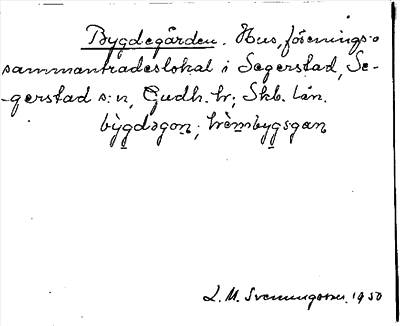 Bygdegården. Hus, förenings-o
sammanträdeslokal i Segerstad, Se-
-gerstad s:n, Gudh. hr; Skb. län.
bỳgdəgon; hèmbygsgan
L. M. Svenungsson. 1950